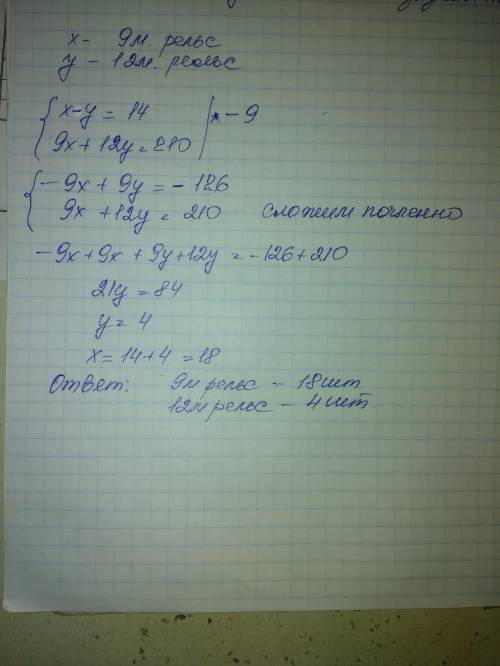 x - 9м. рельс
y - 12м. рельс
x-y = 14 | * - 9
9x + 12y = 210
-9x + 9y = - 126
9x + 12y = 210 сложим почленно
-9x + 9x + 9y + 12y = -126 + 210
21y = 84
y = 4
x = 14 + 4 = 18
Ответ: 9м рельс - 18 шт
12м рельс - 4 шт